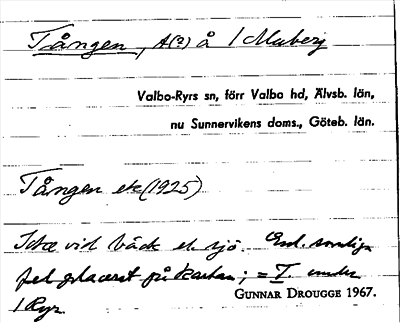 Tången, A(?) å 1 Muberg
Valbo-Ryrs sn, förr Valbo hd, Älvsb. län,
nu Sunnervikens doms., Göteb. län.
Tången ek (1925)
Icke vid bäck el. sjö. Enl. somliga
fel placerat på kartan; = T. under
1 Ryr.
GUNNAR DROUGGE 1967.